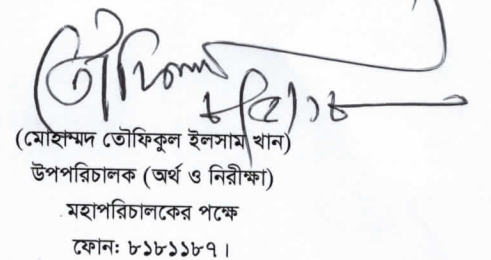 তৌফিকুল
৮/৫/১৮
(মোহাম্মদ তৌফিকুল ইলসাম খান)
উপপরিচালক (অর্থ ও নিরীক্ষা)
মহাপরিচালকের পক্ষে
ফোনঃ ৮১৮১১৮৭।